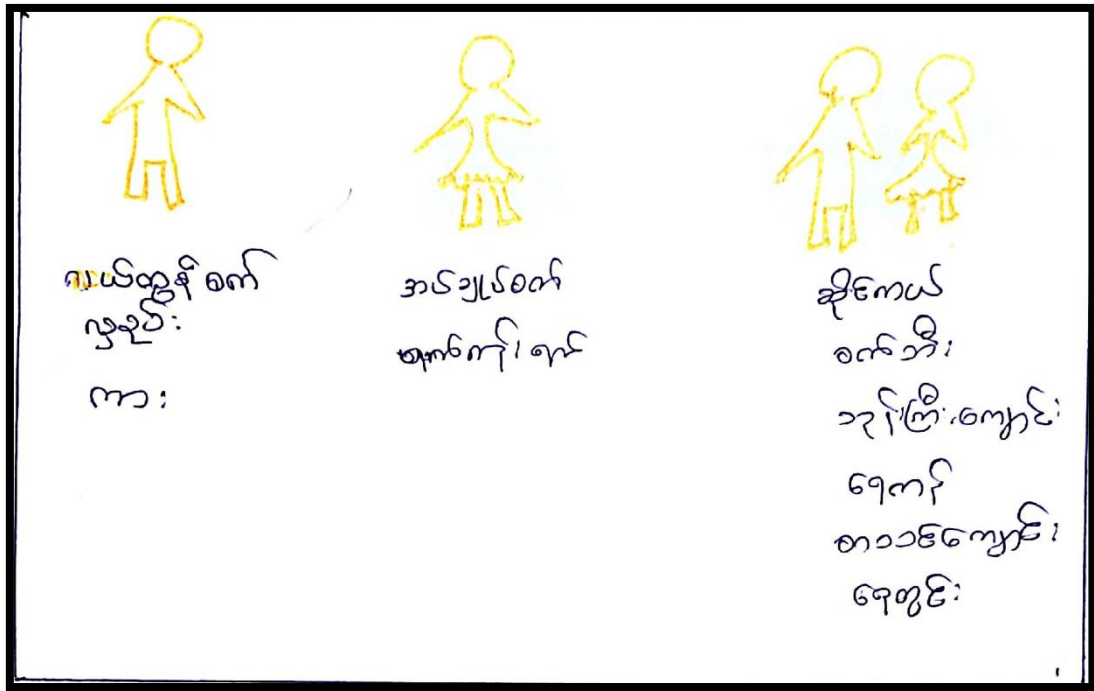 လယ်ထွန်စက်
လှည်း
ကား
အပ်ချုပ်စက်
ရက်ကန်းရက်
ဆိုင်ကယ်
စက်ဘီး
ဘုန်းကြီးကျောင်း
ရေကန်
စာသင်ကျောင်း
ရေတွင်း